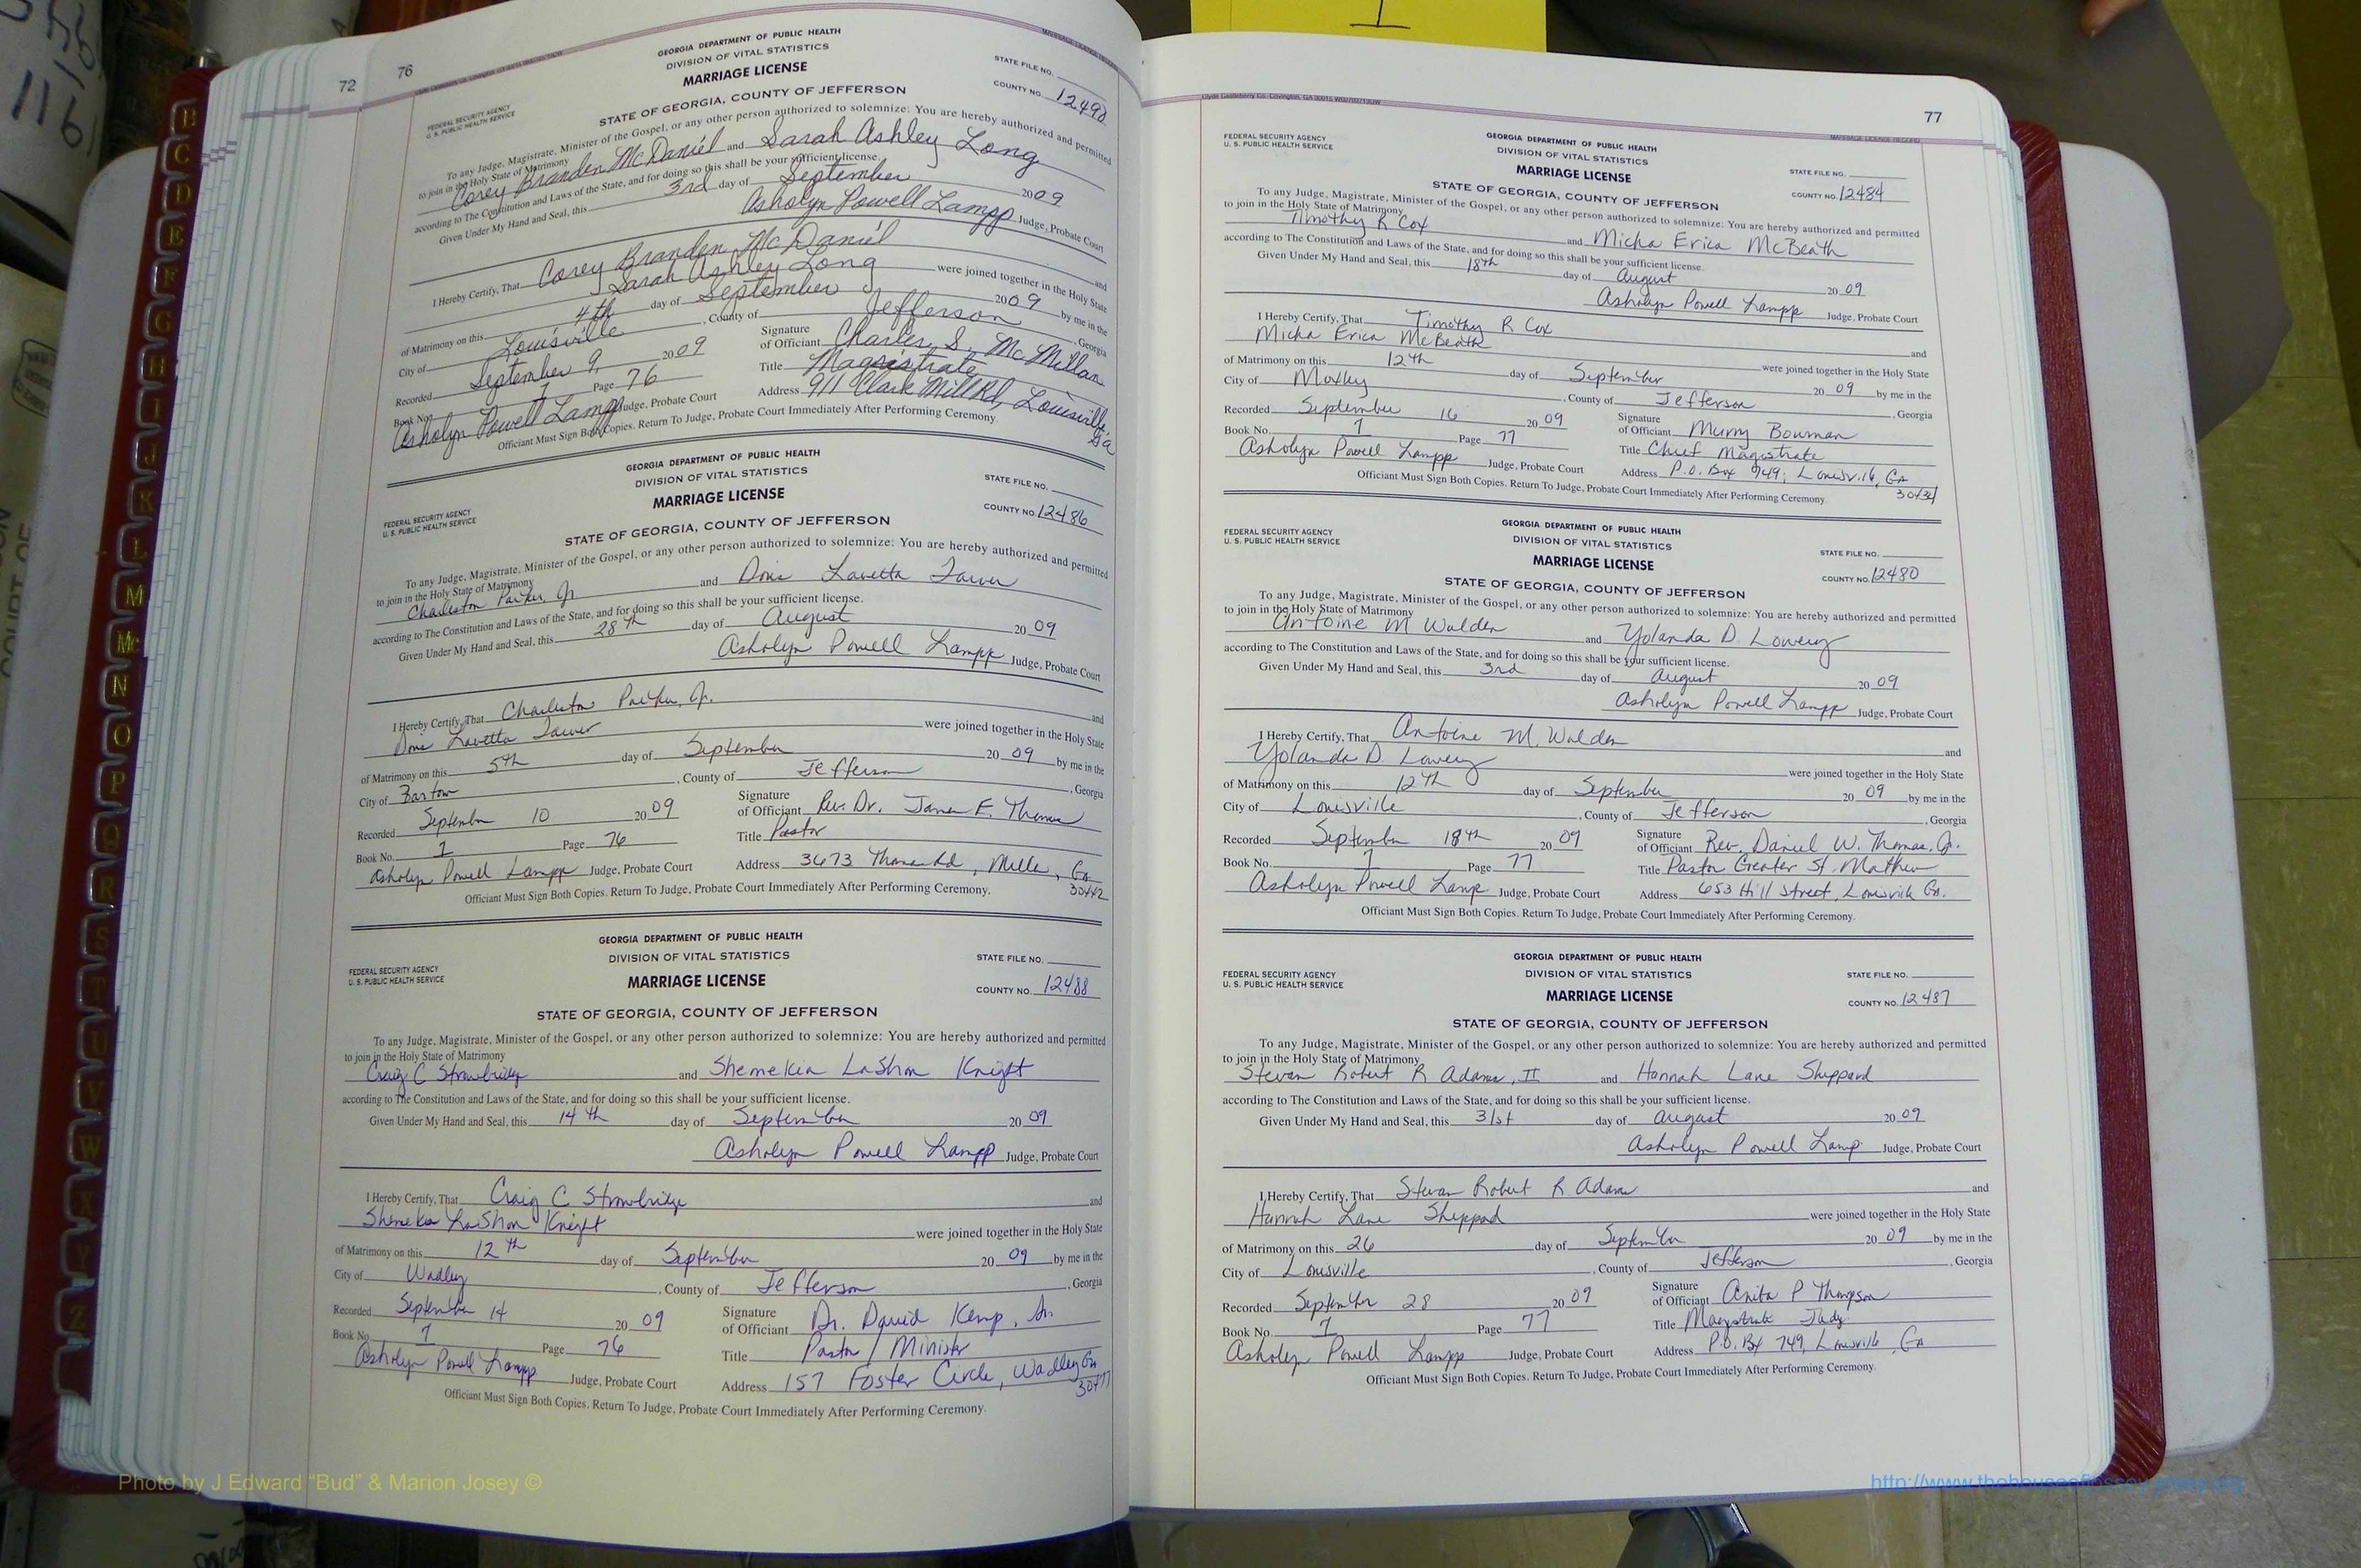 72
76
GEORGIA DEPARTMENT OF PUBLIC HEALTH
DIVISION OF VITAL STATISTICS
MARRIAGE LICENSE
STATE FILE NO.
FEDERAL SECURITY AGENCY
U. S. PUBLIC HEALTH SERVICE
COUNTY NO. 12490
STATE OF GEORGIA, COUNTY OF JEFFERSON
To any Judge, Magistrate, Minister of the Gospel, or any other person authorized to solemnize: You are hereby authorized and permitted
to join in the Holy State of Matrimony
Corey Branden McDaniel and Sarah Ashley Long
according to The Constitution and Laws of the State, and for doing so this shall be your sufficient license.
Given Under My Hand and Seal, this 3rd day of September 2009
Asholyn Powell Lampp Judge, Probate Court
I Hereby Certify, That Corey Branden McDaniel and
Sarah Ashley Long were joined together in the Holy State
of Matrimony on this 4th day of September 2009 by me in the
City of Louisville, County of Jefferson, Georgia
Recorded September 9, 2009 Signature of Officiant Charles S. McMillan
Book No. 7 Page 76 Title Magistrate
Asholyn Powell Lampp Judge, Probate Court Address 911 Clark Mill Rd, Louisville, Ga
Officiant Must Sign Both Copies. Return To Judge, Probate Court Immediately After Performing Ceremony.
GEORGIA DEPARTMENT OF PUBLIC HEALTH
DIVISION OF VITAL STATISTICS
MARRIAGE LICENSE
STATE FILE NO.
FEDERAL SECURITY AGENCY
U. S. PUBLIC HEALTH SERVICE
COUNTY NO. 12486
STATE OF GEORGIA, COUNTY OF JEFFERSON
To any Judge, Magistrate, Minister of the Gospel, or any other person authorized to solemnize: You are hereby authorized and permitted
to join in the Holy State of Matrimony
Charleston Parker, Jr. and Lavetta
according to The Constitution and Laws of the State, and for doing so this shall be your sufficient license.
Given Under My Hand and Seal, this 28th day of August 2009
Asholyn Powell Lampp Judge, Probate Court
I Hereby Certify, That Charleston Parker, Jr. and
Lavetta were joined together in the Holy State
of Matrimony on this 5th day of September 2009 by me in the
City of Bartow, County of Jefferson, Georgia
Recorded September 10 2009 Signature of Officiant Rev. Dr. James E. Thomas
Book No. 7 Page 76 Title Pastor
Asholyn Powell Lampp Judge, Probate Court Address 3673 Thomas Rd, Millen, Ga 30442
Officiant Must Sign Both Copies. Return To Judge, Probate Court Immediately After Performing Ceremony.
GEORGIA DEPARTMENT OF PUBLIC HEALTH
DIVISION OF VITAL STATISTICS
MARRIAGE LICENSE
STATE FILE NO.
FEDERAL SECURITY AGENCY
U. S. PUBLIC HEALTH SERVICE
COUNTY NO. 12488
STATE OF GEORGIA, COUNTY OF JEFFERSON
To any Judge, Magistrate, Minister of the Gospel, or any other person authorized to solemnize: You are hereby authorized and permitted
to join in the Holy State of Matrimony
Craig C Strowbridge and Shemekia LaShon Knight
according to The Constitution and Laws of the State, and for doing so this shall be your sufficient license.
Given Under My Hand and Seal, this 14th day of September 2009
Asholyn Powell Lampp Judge, Probate Court
I Hereby Certify, That Craig C Strowbridge and
Shemeka LaShon Knight were joined together in the Holy State
of Matrimony on this 12th day of September 2009 by me in the
City of Wadley, County of Jefferson, Georgia
Recorded September 14 2009 Signature of Officiant Dr. David Kemp, Sr.
Book No. 7 Page 76 Title Pastor / Minister
Asholyn Powell Lampp Judge, Probate Court Address 157 Foster Circle, Wadley Ga 30477
Officiant Must Sign Both Copies. Return To Judge, Probate Court Immediately After Performing Ceremony.
77
FEDERAL SECURITY AGENCY
U. S. PUBLIC HEALTH SERVICE
GEORGIA DEPARTMENT OF PUBLIC HEALTH
DIVISION OF VITAL STATISTICS
MARRIAGE LICENSE
STATE FILE NO.
COUNTY NO. 12484
STATE OF GEORGIA, COUNTY OF JEFFERSON
To any Judge, Magistrate, Minister of the Gospel, or any other person authorized to solemnize: You are hereby authorized and permitted
to join in the Holy State of Matrimony
Timothy R Cox and Micha Erica McBeath
according to The Constitution and Laws of the State, and for doing so this shall be your sufficient license.
Given Under My Hand and Seal, this 18th day of August 2009
Asholyn Powell Lampp Judge, Probate Court
I Hereby Certify, That Timothy R Cox
Micha Erica McBeath and
were joined together in the Holy State
of Matrimony on this 12th day of September 2009 by me in the
City of Moxley, County of Jefferson, Georgia
Recorded September 16 2009 Signature of Officiant Murry Bowman
Book No. 7 Page 77 Title Chief Magistrate
Asholyn Powell Lampp Judge, Probate Court Address P.O. Box 749, Louisville, Ga 30434
Officiant Must Sign Both Copies. Return To Judge, Probate Court Immediately After Performing Ceremony.
FEDERAL SECURITY AGENCY
U. S. PUBLIC HEALTH SERVICE
GEORGIA DEPARTMENT OF PUBLIC HEALTH
DIVISION OF VITAL STATISTICS
MARRIAGE LICENSE
STATE FILE NO.
COUNTY NO. 12480
STATE OF GEORGIA, COUNTY OF JEFFERSON
To any Judge, Magistrate, Minister of the Gospel, or any other person authorized to solemnize: You are hereby authorized and permitted
to join in the Holy State of Matrimony
Antoine M Walden and Yolanda D. Lowery
according to The Constitution and Laws of the State, and for doing so this shall be your sufficient license.
Given Under My Hand and Seal, this 3rd day of August 2009
Asholyn Powell Lampp Judge, Probate Court
I Hereby Certify, That Antoine M. Walden and
Yolanda D. Lowery were joined together in the Holy State
of Matrimony on this 12th day of September 2009 by me in the
City of Louisville, County of Jefferson, Georgia
Recorded September 18th 2009 Signature of Officiant Rev. Daniel W. Thomas, Jr.
Book No. 7 Page 77 Title Pastor Greater St. Mathew
Asholyn Powell Lamp Judge, Probate Court Address 653 Hill Street, Louisville Ga.
Officiant Must Sign Both Copies. Return To Judge, Probate Court Immediately After Performing Ceremony.
FEDERAL SECURITY AGENCY
U. S. PUBLIC HEALTH SERVICE
GEORGIA DEPARTMENT OF PUBLIC HEALTH
DIVISION OF VITAL STATISTICS
MARRIAGE LICENSE
STATE FILE NO.
COUNTY NO. 12487
STATE OF GEORGIA, COUNTY OF JEFFERSON
To any Judge, Magistrate, Minister of the Gospel, or any other person authorized to solemnize: You are hereby authorized and permitted
to join in the Holy State of Matrimony
Stevan Robert R Adams, II and Hannah Lane Sheppard
according to The Constitution and Laws of the State, and for doing so this shall be your sufficient license.
Given Under My Hand and Seal, this 31st day of August 2009
Asholyn Powell Lamp Judge, Probate Court
I Hereby Certify, That Stevan Robert R Adams and
Hannah Lane Sheppard were joined together in the Holy State
of Matrimony on this 26 day of September 2009 by me in the
City of Louisville, County of Jefferson, Georgia
Recorded September 28 2009 Signature of Officiant Anita P Thompson
Book No. 7 Page 77 Title Magistrate Judge
Asholyn Powell Lampp Judge, Probate Court Address P.O. Bx 749, Louisville, Ga
Officiant Must Sign Both Copies. Return To Judge, Probate Court Immediately After Performing Ceremony.
B
C
D
E
F
G
H
I
J
K
L
M
Mc
N
O
P
Q
R
S
T
U
V
W
X
Y
Z
Photo by J Edward “Bud” & Marion Josey ©